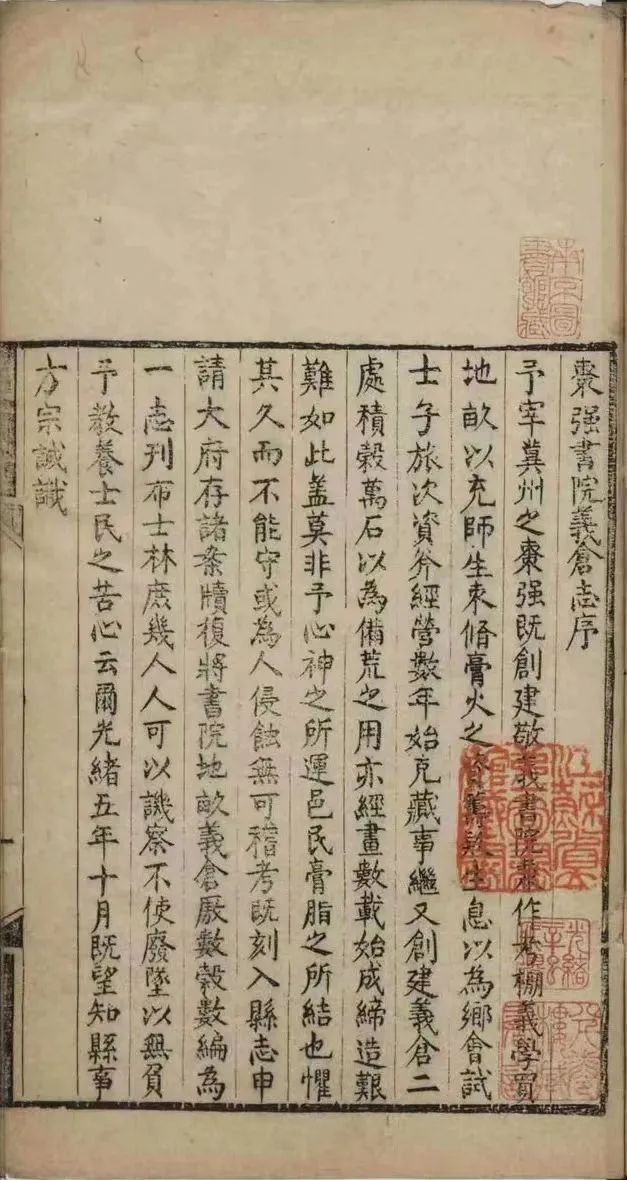 南京圖書館藏
棗强書院義倉志序
予宰冀州之棗强既創建敬義書院兼作考棚義學買
地畝以充師生束脩膏火之資籌款生息以為鄉會試
士子旅次資斧經營數年始克蕆事繼又創建義倉二
處積穀萬石以為備荒之用亦經畫數載始成締造艱
難如此盖莫非予心神之所運邑民膏脂之所結也懼
其久而不能守或為人侵蝕無可稽考既刻入縣志申
請大府存諸案牘復將書院地畝義倉厫數穀數編為
一志刊布士林庶幾人人可以譏察不使廢墜以無負
予教養士民之苦心云爾光緒五年十月既望知縣事
方宗誠識